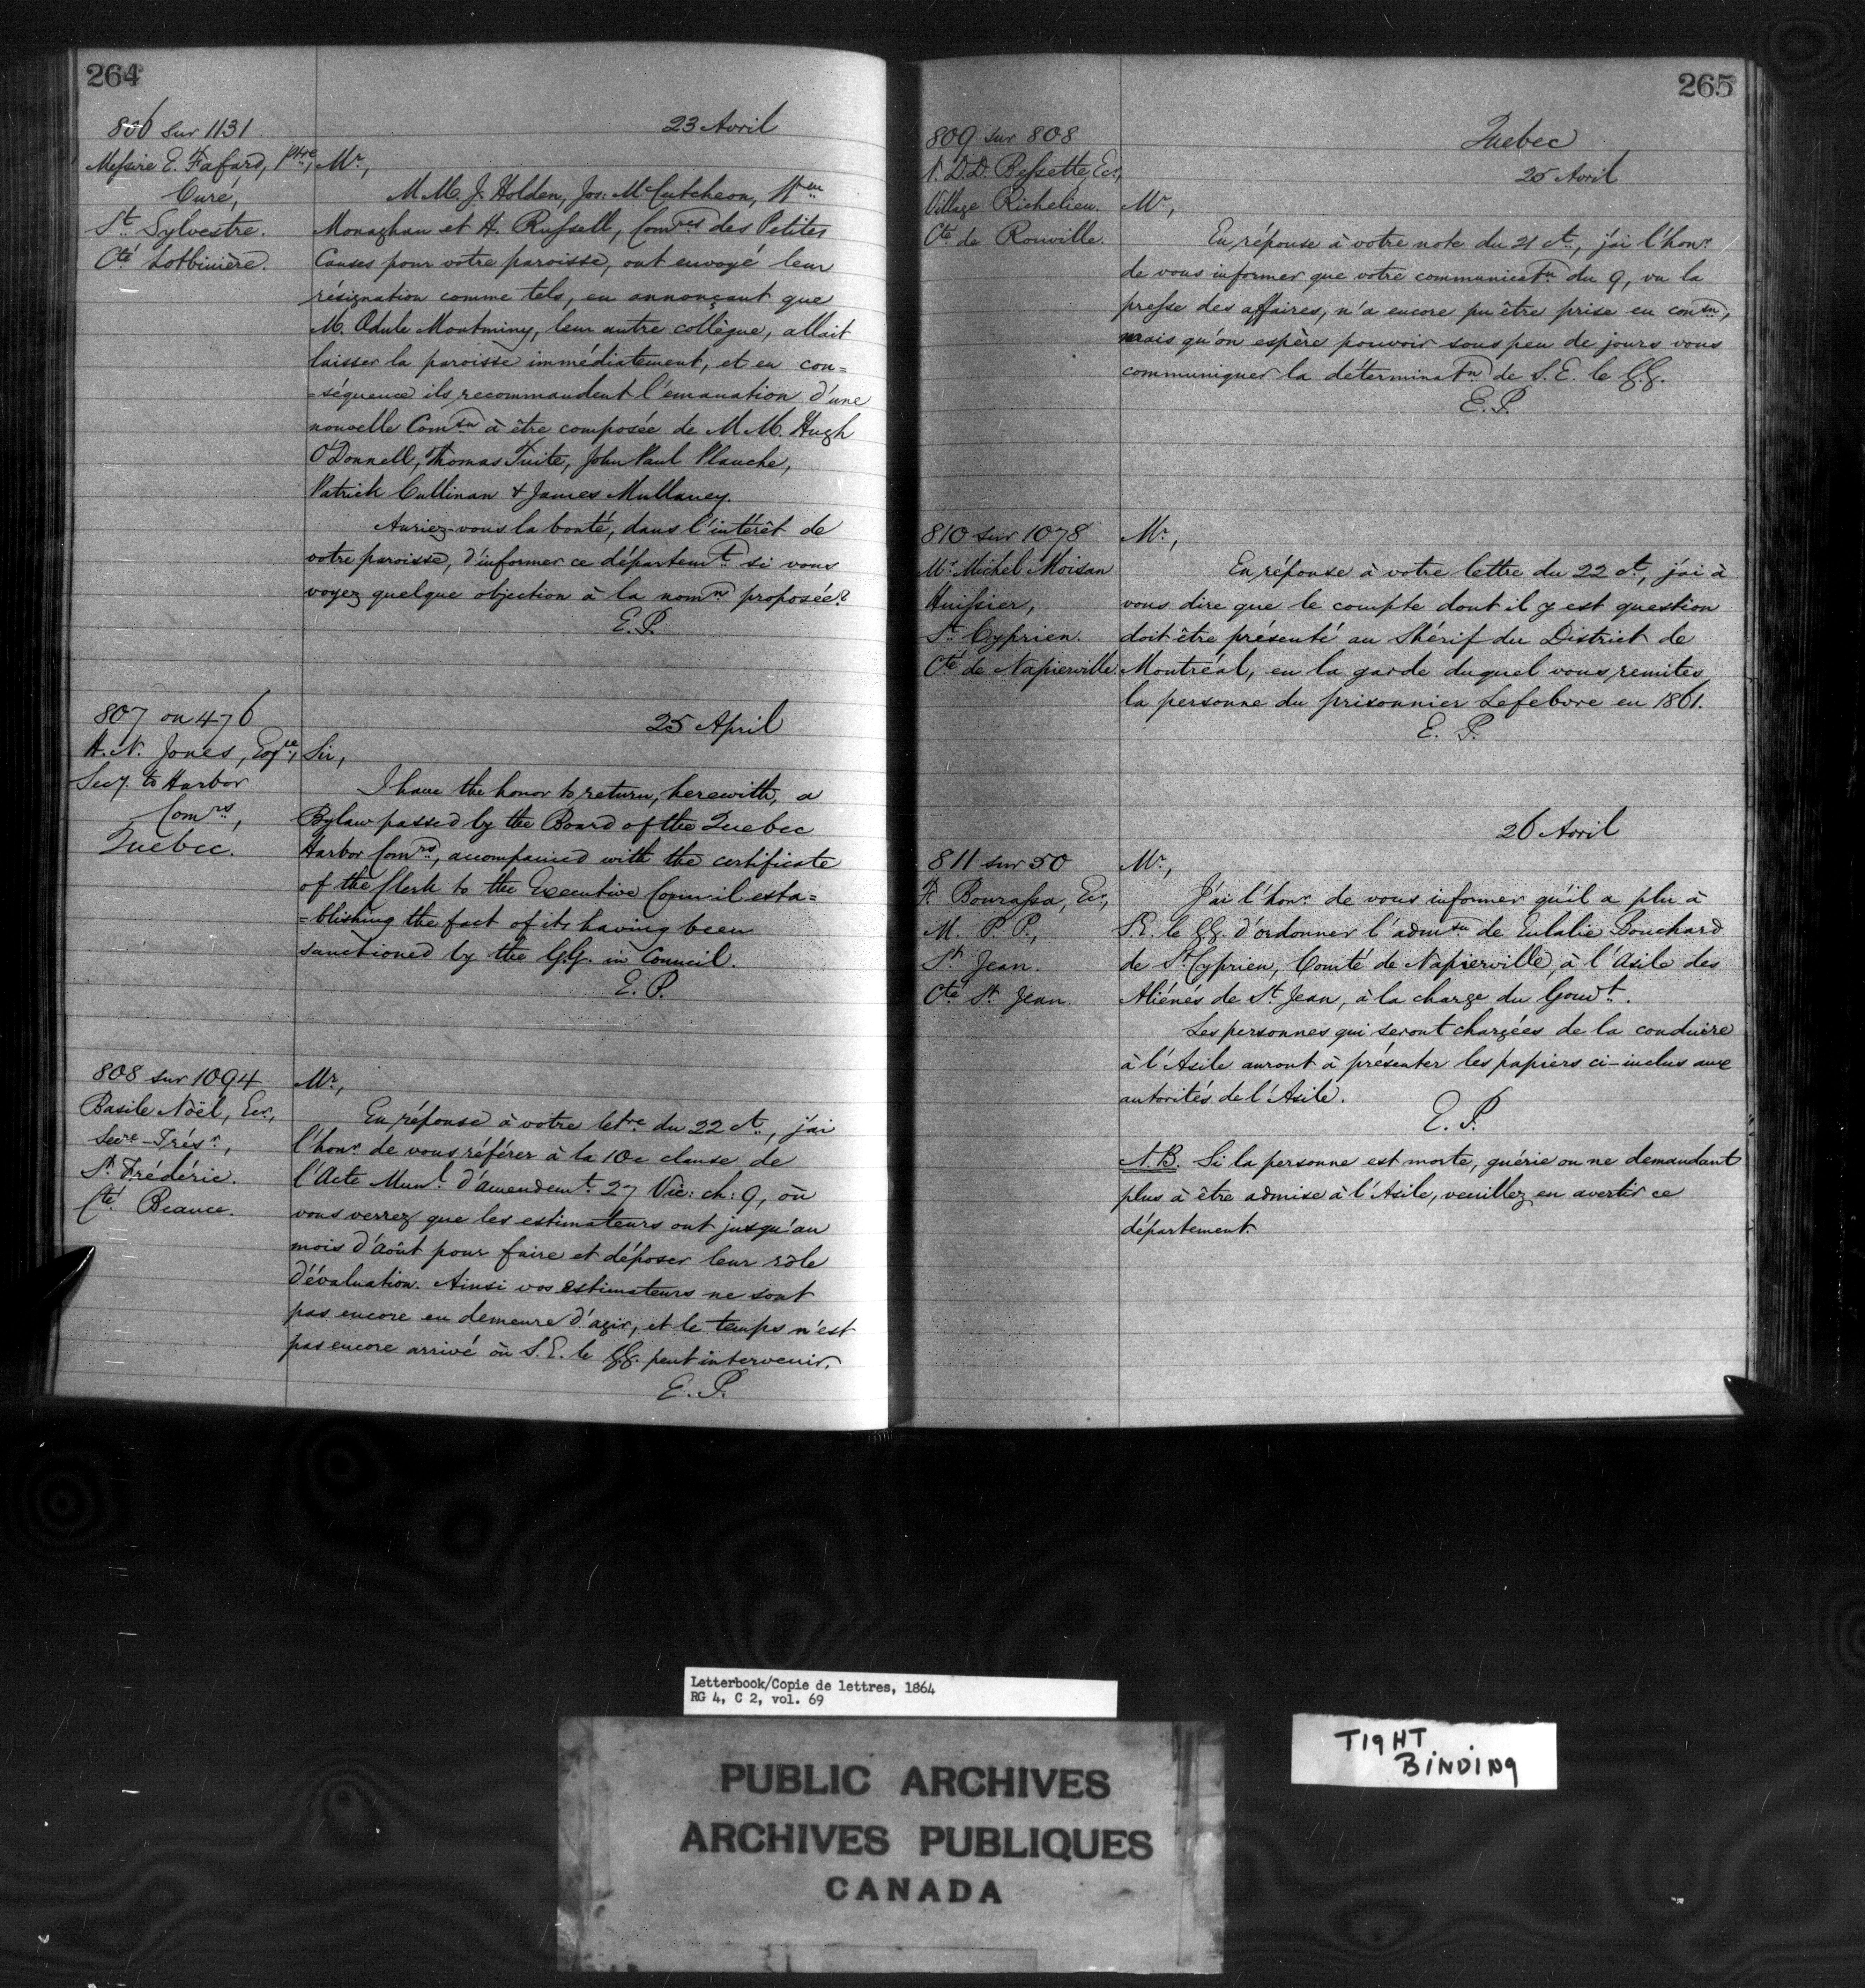 264
806 sur 1131
23 Avril
Messire E. Fafard, Ptre,
Curé,
St. Sylvestre.
Cté Lotbinière.
Mr.,
M.M. J. Holden, Jos: McCutcheon, Wm
Monaghan et H. Russell, Comres des Petites
Causes pour votre paroisse, ont envoyé leur
résignation comme tels, en annonçant que
M. Odule Montminy, leur autre collègue, allait
laisser la paroisse immédiatement, et en con=
=séquence ils recommandent l'emanation d'une
nouvelle Comson à être composée de M.M. Hugh
O'Donnell, Thomas Tuite, John Paul Planche,
Patrick Cullinan & James Mullaney.
Auriez-vous la bonté, dans l'intérêt de
votre paroisse, d'informer ce départemt. si vous
voyez quelque objection à la nomn proposée?
E.P.
807 on 476
25 April
H. N. Jones, Esqre,
Secy. to Harbor
Comrs,
Quebec.
Sir,
I have the honor to return, herewith, a
Bylaw passed by the Board of the Quebec
Harbor Comrs, accompanied with the certificate
of the Clerk to the Executive Council esta=
=blishing the fact of its having been
sanctioned by the G.G. in Council.
E. P.
808 sur 1094
Basile Noël, Ecr.,
Secre-Trésr,
St. Frédéric.
Cté Beauce.
Mr,
En réponse à votre letre du 22 ct., j'ai
l'honr de vous référer à la 10e clause de
l'Acte Munl. d'amendemt. 27 Vic: ch: 9, où
vous verrez que les estimateurs ont jusqu'au
mois d'août pour faire et déposer leur rôle
d'évaluation. Ainsi vos estimateurs ne sont
pas encore en demeure d'agir, et le temps n'est
pas encore arrivé où S.E. le G.G. peut intervenir.
E. P.
265
Quebec
809 sur 808
25 Avril
N. D.D. Bessette, Ecr,
Village Richelieu.
Cté de Rouville.
Mr,
En réponse à votre note du 21 ct., j'ai l'honr
de vous informer que votre communicatn du 9, vu la
presse des affaires, n'a encore pu être prise en conson,
mais qu'on espère pouvoir sous peu de jours vous
communiquer la déterminatn de S.E. le G.G.
E.P.
810 sur 1078
Mr Michel Moisan
Huissier,
St. Cyprien.
Cté de Napierville.
Mr.,
En réponse à votre lettre du 22 ct., j'ai à
vous dire que le compte dont il y est question
doit être présenté au Shérif du District de
Montréal, en la garde duquel vous remites
la personne du prisonnier Lefebvre en 1861.
E. P.
26 Avril
811 sur 50
F. Bourassa, Ecr,
M. P. P.,
St. Jean.
Cté St. Jean.
Mr,
J'ai l'honr de vous informer qu'il a plu à
S.E. le G.G. d'ordonner l'admson de Eulalie Bouchard
de St. Cyprien, Comté de Napierville, à l'Asile des
Aliénés de St. Jean, à la charge du Gouvt.
Les personnes qui seront chargées de la conduire
à l'Asile auront à présenter les papiers ci-inclus aux
autorités de l'Asile.
E. P.
N.B. Si la personne est morte, guérie ou ne demandant
plus à être admise à l'Asile, veuillez en avertir ce
département.
Letterbook/Copie de lettres, 1864
RG 4, C 2, vol. 69
PUBLIC ARCHIVES
ARCHIVES PUBLIQUES
CANADA
TIGHT
BINDING